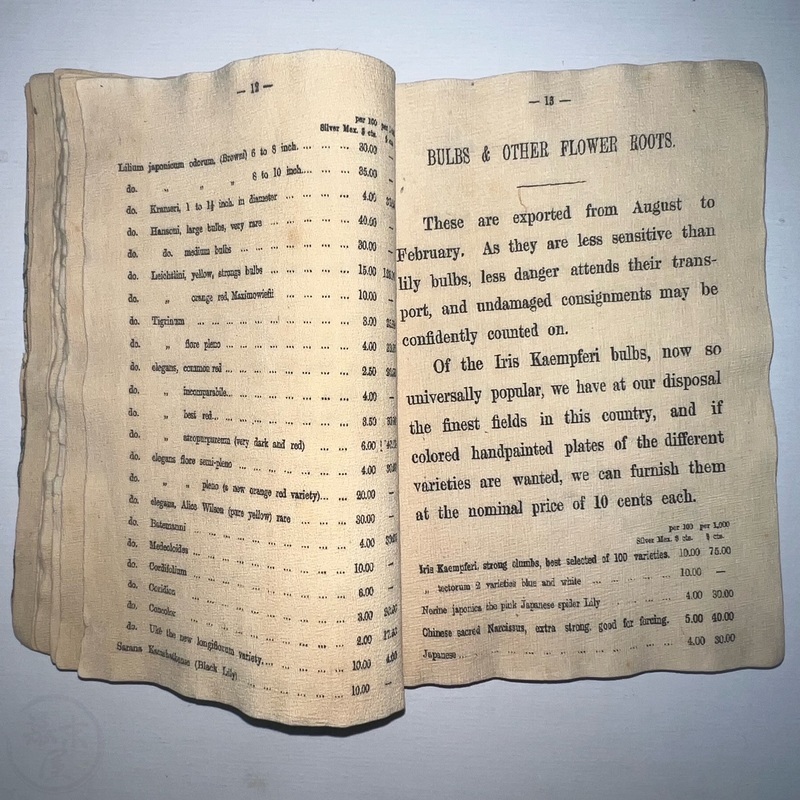 — 12 —
per 100
Silver Mex. $ cts. $ cts.
Lilium japonicum odorum, (Browni) 6 to 8 inch. ... ... ... 30.00
do. „ „ „ 8 to 10 inch.... ... ... 35.00
do. Krameri, 1 to 1½ inch. in diameter ... ... ... 4.00
do. Hansoni, large bulbs, very rare ... ... ... ... 40.00
do. do. medium bulbs ... ... ... ... ... 30.00
do. Leichtlini, yellow, strongs bulbs ... ... ... ... 15.00
do. „ orange red, Maximowiefii ... ... ... ... 10.00
do. Tigrinum ... ... ... ... ... ... ... 3.00
do. „ flore pleno ... ... ... ... ... ... 4.00
do. elegans, common red ... ... ... ... ... ... 2.50
do. „ incomparabile... ... ... ... ... ... 4.00 —
do. „ best red... ... ... ... ... ... 3.50
do. „ atropurpureum (very dark and red) ... ... 6.00
do. elegans flore semi-pleno ... ... ... ... ... 4.00
do. „ „ pleno (a new orange red variety)... ... 20.00 —
do. elegans, Alice Wilson (pure yellow) rare ... ... ... 30.00 —
do. Batemanni ... ... ... ... ... ... ... 4.00
do. Medeoloides ... ... ... ... ... ... ... 10.00 —
do. Cordifolium ... ... ... ... ... ... ... 6.00 —
do. Coridion ... ... ... ... ... ... ... 3.00
do. Concolor ... ... ... ... ... ... ... 2.00
do. the new longiflorum variety.... ... ... ... 10.00
Sarana (Black Lily) ... ... ... ... 10.00 —
— 13 —
BULBS & OTHER FLOWER ROOTS.
These are exported from August to
February. As they are less sensitive than
lily bulbs, less danger attends their trans-
port, and undamaged consignments may be
confidently counted on.
Of the Iris Kaempferi bulbs, now so
universally popular, we have at our disposal
the finest fields in this country, and if
colored handpainted plates of the different
varieties are wanted, we can furnish them
at the nominal price of 10 cents each.
per 100 per 1,000
Silver Mex. $ cts. $ cts.
Iris Kaempferi, strong clumbs, best selected of 100 varieties. 10.00 75.00
„ tectorum 2 varieties blue and white ... ... ... ... 10.00 —
Nerine japonica the pink Japanese spider Lily ... ... ... 4.00 30.00
Chinese sacred Narcissus, extra strong, good for forcing. 5.00 40.00
Japanese ... ... ... ... ... ... ... ... 4.00 30.00